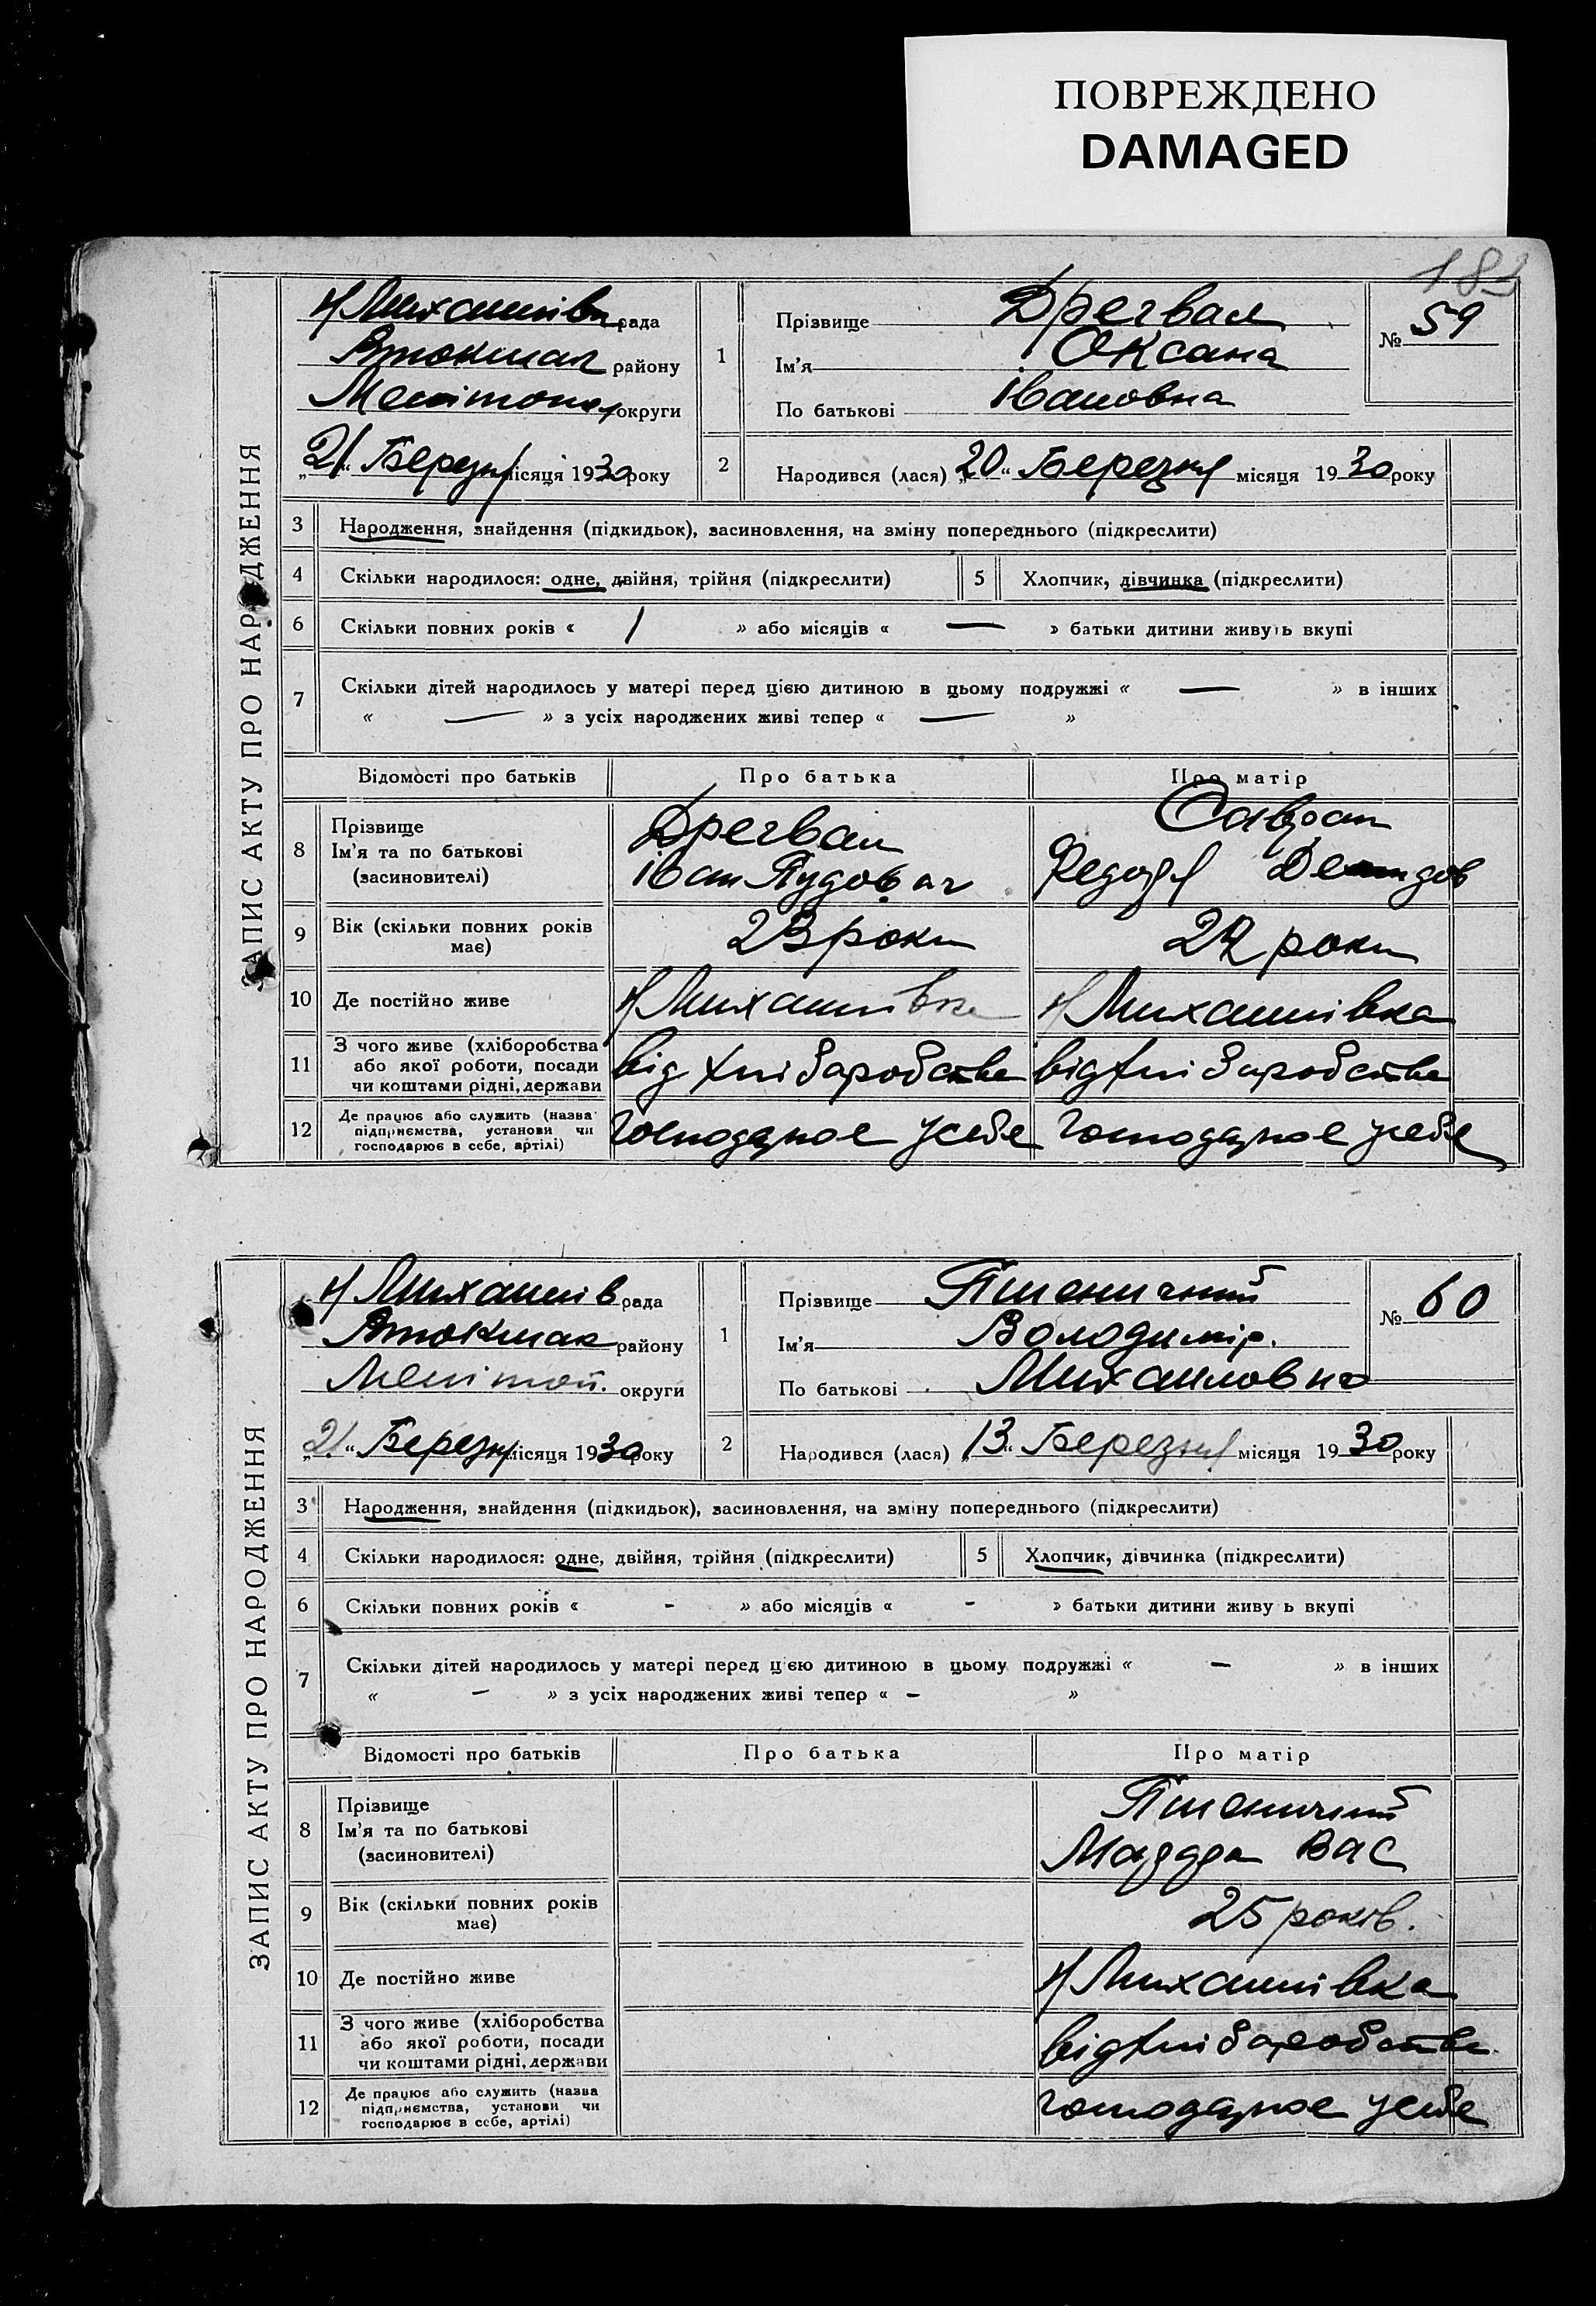 ПОВРЕЖДЕНО
DAMAGED
ЗАПИС АКТУ ПРО НАРОДЖЕННЯ
Н Михайлівк рада
Втокмач району
Мелітопол округи
„21“ Березня місяця 1930 року
1
Прізвище Дрегвал
Ім'я Оксана
По батькові Івановна
№ 59
2
Народився (лася) „20“ Березня місяця 1930 року
3 Народження, знайдення (підкидьок), засиновлення, на зміну попереднього (підкреслити)
4 Скільки народилося: одне, двійня, трійня (підкреслити)
5 Хлопчик, дівчинка (підкреслити)
6 Скільки повних років « 1 » або місяців « — » батьки дитини живуть вкупі
7 Скільки дітей народилось у матері перед цією дитиною в цьому подружжі « — » в інших
« — » з усіх народжених живі тепер « — »
Відомості про батьків Про батька Про матір
8 Прізвище
Ім'я та по батькові
(засиновителі)
Дрегвал
Іван Пудович
Савран
Федора
9 Вік (скільки повних років
має)
23 роки
22 роки
10 Де постійно живе
Н Михайлівка
Н Михайлівка
11 З чого живе (хліборобства
або якої роботи, посади
чи коштами рідні, держави
від хліборобства
від хліборобства
12 Де працює або служить (назва
підприємства, установи чи
господарює в себе, артілі)
господарює у себе
господарює у себе
ЗАПИС АКТУ ПРО НАРОДЖЕННЯ
Н Михайлів рада
Втокмак району
Мелітоп. округи
„21“ Березня місяця 1930 року
1
Прізвище Пшеничний
Ім'я Володимір.
По батькові Михайловно
№ 60
2
Народився (лася) „13“ Березня місяця 1930 року
3 Народження, знайдення (підкидьок), засиновлення, на зміну попереднього (підкреслити)
4 Скільки народилося: одне, двійня, трійня (підкреслити)
5 Хлопчик, дівчинка (підкреслити)
6 Скільки повних років « - » або місяців « - » батьки дитини живу ь вкупі
7 Скільки дітей народилось у матері перед цією дитиною в цьому подружжі « — » в інших
« — » з усіх народжених живі тепер « — »
Відомості про батьків Про батька Про матір
8 Прізвище
Ім'я та по батькові
(засиновителі)
Пшеничний
Вас
9 Вік (скільки повних років
має)
25 років.
10 Де постійно живе
Н Михайлівка
11 З чого живе (хліборобства
або якої роботи, посади
чи коштами рідні, держави
від хліборобства
12 Де працює або служить (назва
підприємства, установи чи
господарює в себе, артілі)
господарює у себе